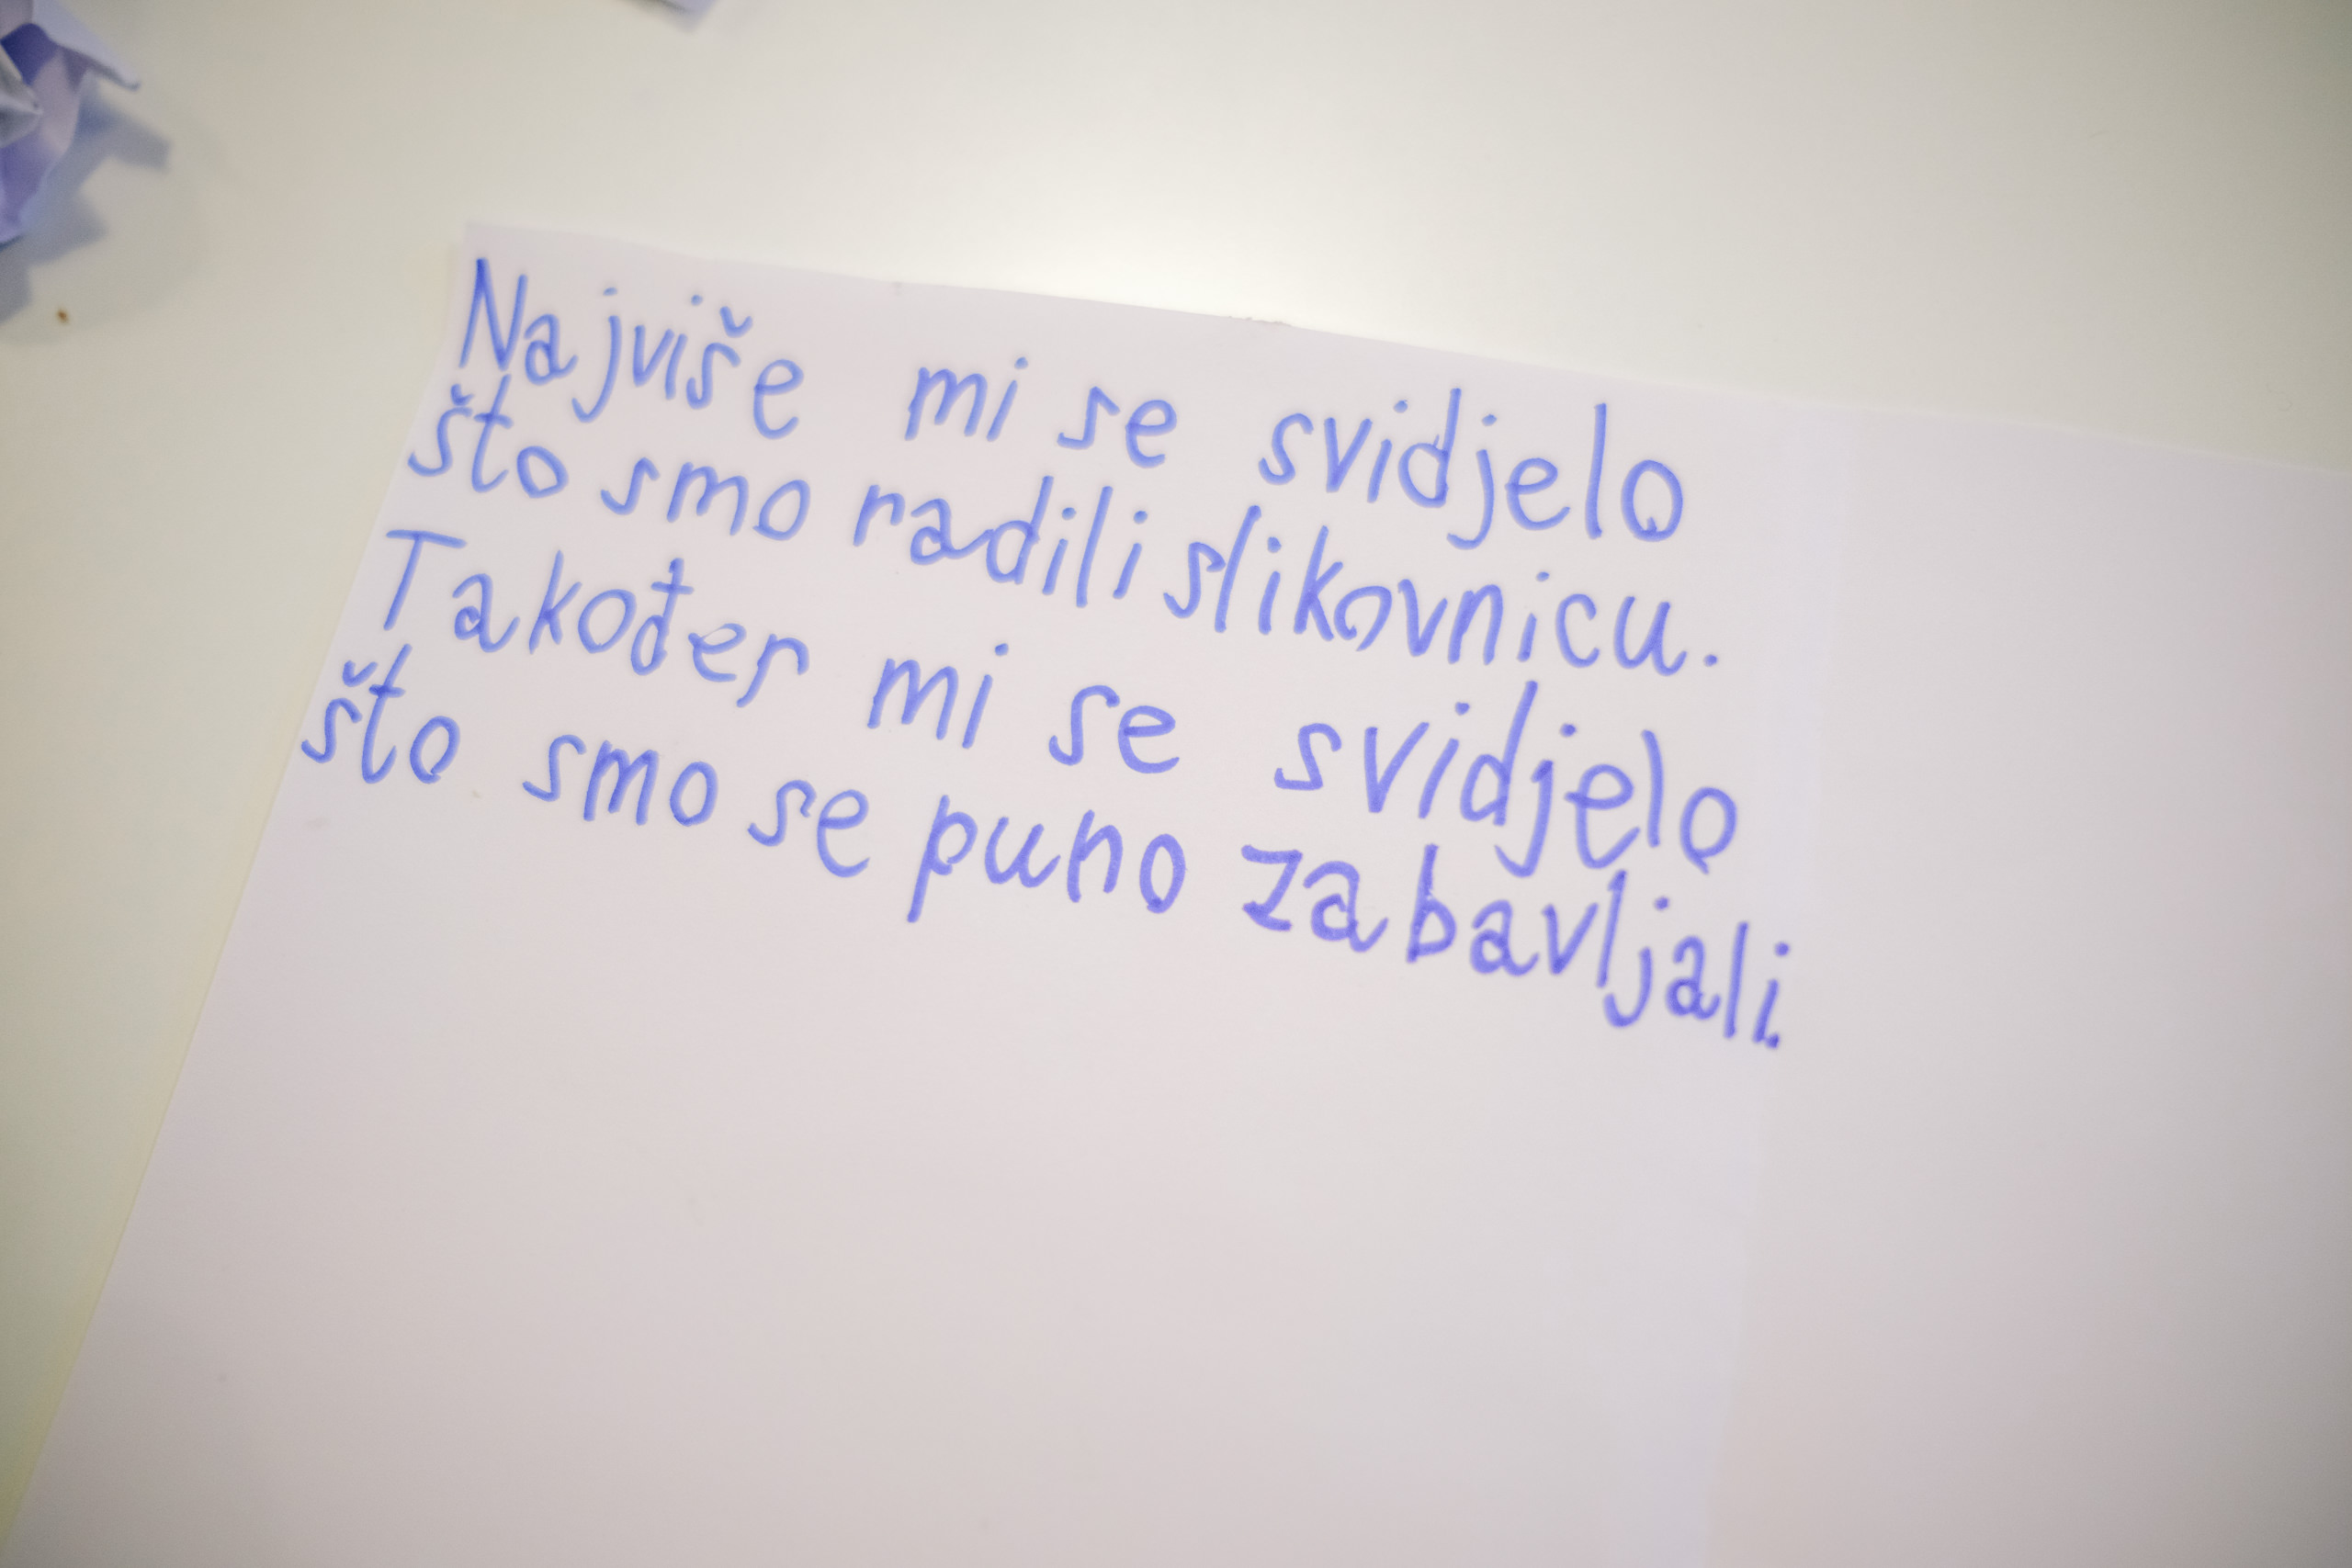 Najviše mi se svidjelo
što smo radili slikovnicu.
Također mi se svidjelo
što smo se puno zabavljali.